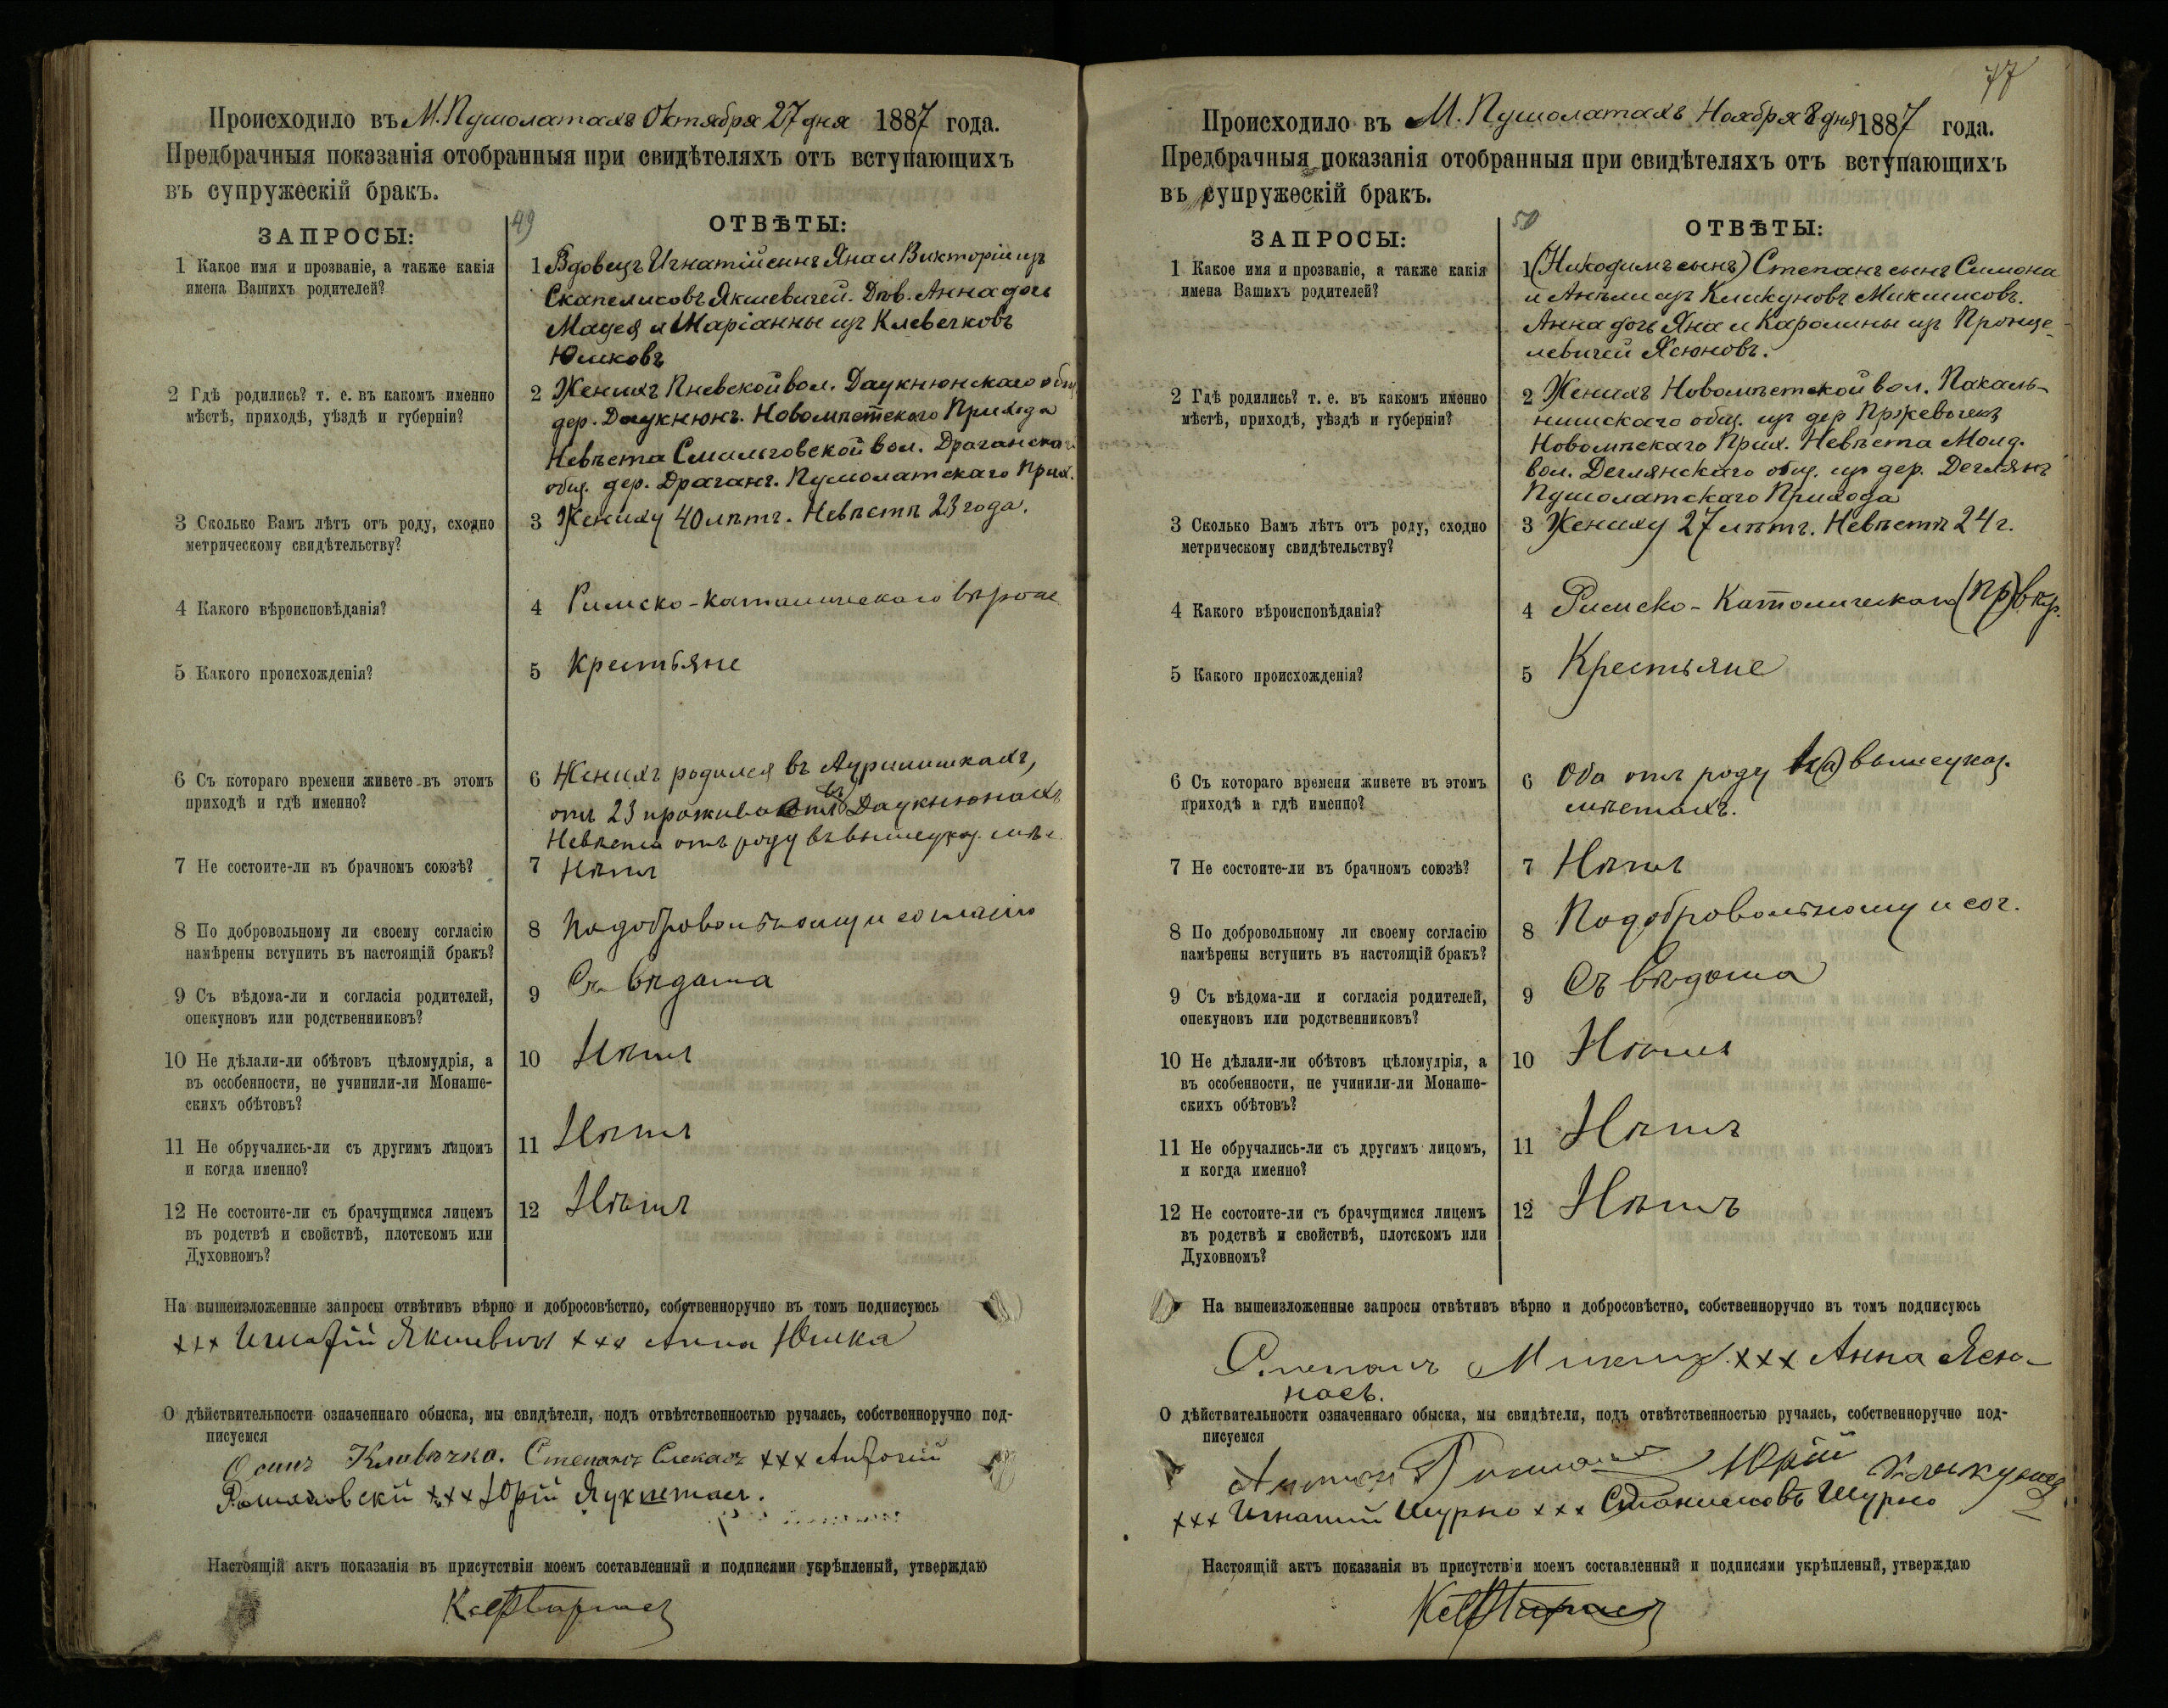 Происходило въ М. Пушолатахъ Октября 27 дня 1887 года.
Предбрачныя показанія отобранныя при свидѣтеляхъ отъ вступающихъ
въ супружескій бракъ.
49
ЗАПРОСЫ:
ОТВѢТЫ:
1 Какое имя и прозваніе, а также какія
имена Вашихъ родителей?
1 Вдовецъ Игнатій сынъ Яна и Викторіи изъ
Скапелисовъ Якшевичей. Дѣв. Анна дочь
Мацея и Маріанны изъ Клевечковъ
Юшковъ
2 Гдѣ родились? т. е. въ какомъ именно
мѣстѣ, приходѣ, уѣздѣ и губерніи?
2 Женихъ Пневской вол. Даукнюнскаго общ.
дер. Даукнюнъ. Новомѣстскаго Прихода
Невѣста Смильговской вол. Драганскаго
общ. дер. Драганъ. Пушолатскаго Прих.
3 Сколько Вамъ лѣтъ отъ роду, сходно
метрическому свидѣтельству?
3 Жениху 40 лѣтъ. Невѣстѣ 23 года.
4 Какого вѣроисповѣданія?
4 Римско-католическаго вѣроис
5 Какого происхожденія?
5 Крестьяне
6 Съ котораго времени живете въ этомъ
приходѣ и гдѣ именно?
6 Женихъ родился въ
отъ 23 проживаетъ въ Даукнюнахъ
Невѣста отъ роду въ вышеуказ. мѣс.
7 Не состоите-ли въ брачномъ союзѣ?
7 Нѣтъ
8 По добровольному ли своему согласію
намѣрены вступить въ настоящій бракъ?
8 По добровольному и согласію
9 Съ вѣдома-ли и согласія родителей,
опекуновъ или родственниковъ?
9 Съ вѣдома
10 Не дѣлали-ли обѣтовъ цѣломудрія, а
въ особенности, не учинили-ли Монаше-
скихъ обѣтовъ?
10 Нѣтъ
11 Не обручались-ли съ другимъ лицомъ
и когда именно?
11 Нѣтъ
12 Не состоите-ли съ брачущимся лицемъ
въ родствѣ и свойствѣ, плотскомъ или
Духовномъ?
12 Нѣтъ
На вышеизложенные запросы отвѣтивъ вѣрно и добросовѣстно, собственноручно въ томъ подписуюсь
+++ Игнатій Якшевичъ +++ Анна Юшка
О дѣйствительности означеннаго обыска, мы свидѣтели, подъ отвѣтственностью ручаясь, собственноручно под-
писуемся
Осипъ Клавѣчко. Степанъ +++ Антоній
+++ Юрій
Настоящій актъ показанія въ присутствіи моемъ составленный и подписями укрѣпленый, утверждаю
77
Происходило въ М. Пушолатахъ Ноября 8 дня 1887 года.
Предбрачныя показанія отобранныя при свидѣтеляхъ отъ вступающихъ
въ супружескій бракъ.
50
ЗАПРОСЫ:
ОТВѢТЫ:
1 Какое имя и прозваніе, а также какія
имена Вашихъ родителей?
1 (Никодимъ сынъ) Степанъ сынъ Симона
и Анели изъ Кликуновъ Микшисовъ.
Анна дочь Яна и Каролины изъ Пронце-
левичей Ясюновъ.
2 Гдѣ родились? т. е. въ какомъ именно
мѣстѣ, приходѣ, уѣздѣ и губерніи?
2 Женихъ Новомѣстской вол. Пакаль-
нишскаго общ. изъ дер
Новомѣскаго Прих. Невѣста
вол. Деглянскаго общ. изъ дер. Деглянъ
Пушолатскаго Прихода
3 Сколько Вамъ лѣтъ отъ роду, сходно
метрическому свидѣтельству?
3 Жениху 27 лѣтъ. Невѣстѣ 24 г.
4 Какого вѣроисповѣданія?
4 Римско-Католическаго (пр)
5 Какого происхожденія?
5 Крестьяне
6 Съ котораго времени живете въ этомъ
приходѣ и гдѣ именно?
6 Оба отъ роду въ(а) вышеуказ.
мѣстахъ.
7 Не состоите-ли въ брачномъ союзѣ?
7 Нѣтъ
8 По добровольному ли своему согласію
намѣрены вступить въ настоящій бракъ?
8 По добровольному и сог.
9 Съ вѣдома-ли и согласія родителей,
опекуновъ или родственниковъ?
9 Съ вѣдома
10 Не дѣлали-ли обѣтовъ цѣломудрія, а
въ особенности, не учинили-ли Монаше-
скихъ обѣтовъ?
10 Нѣтъ
11 Не обручались-ли съ другимъ лицомъ,
и когда именно?
11 Нѣтъ
12 Не состоите-ли съ брачущимся лицемъ
въ родствѣ и свойствѣ, плотскомъ или
Духовномъ?
12 Нѣтъ
На вышеизложенные запросы отвѣтивъ вѣрно и добросовѣстно, собственноручно въ томъ подписуюсь
Степанъ Микшис. +++ Анна Ясю-
насъ.
О дѣйствительности означеннаго обыска, мы свидѣтели, подъ отвѣтственностью ручаясь, собственноручно под-
писуемся
Юрій
+++ Игнатій Шурно +++ Станиславъ Шурно
Настоящій актъ показанія въ присутствіи моемъ составленный и подписями укрѣпленый, утверждаю